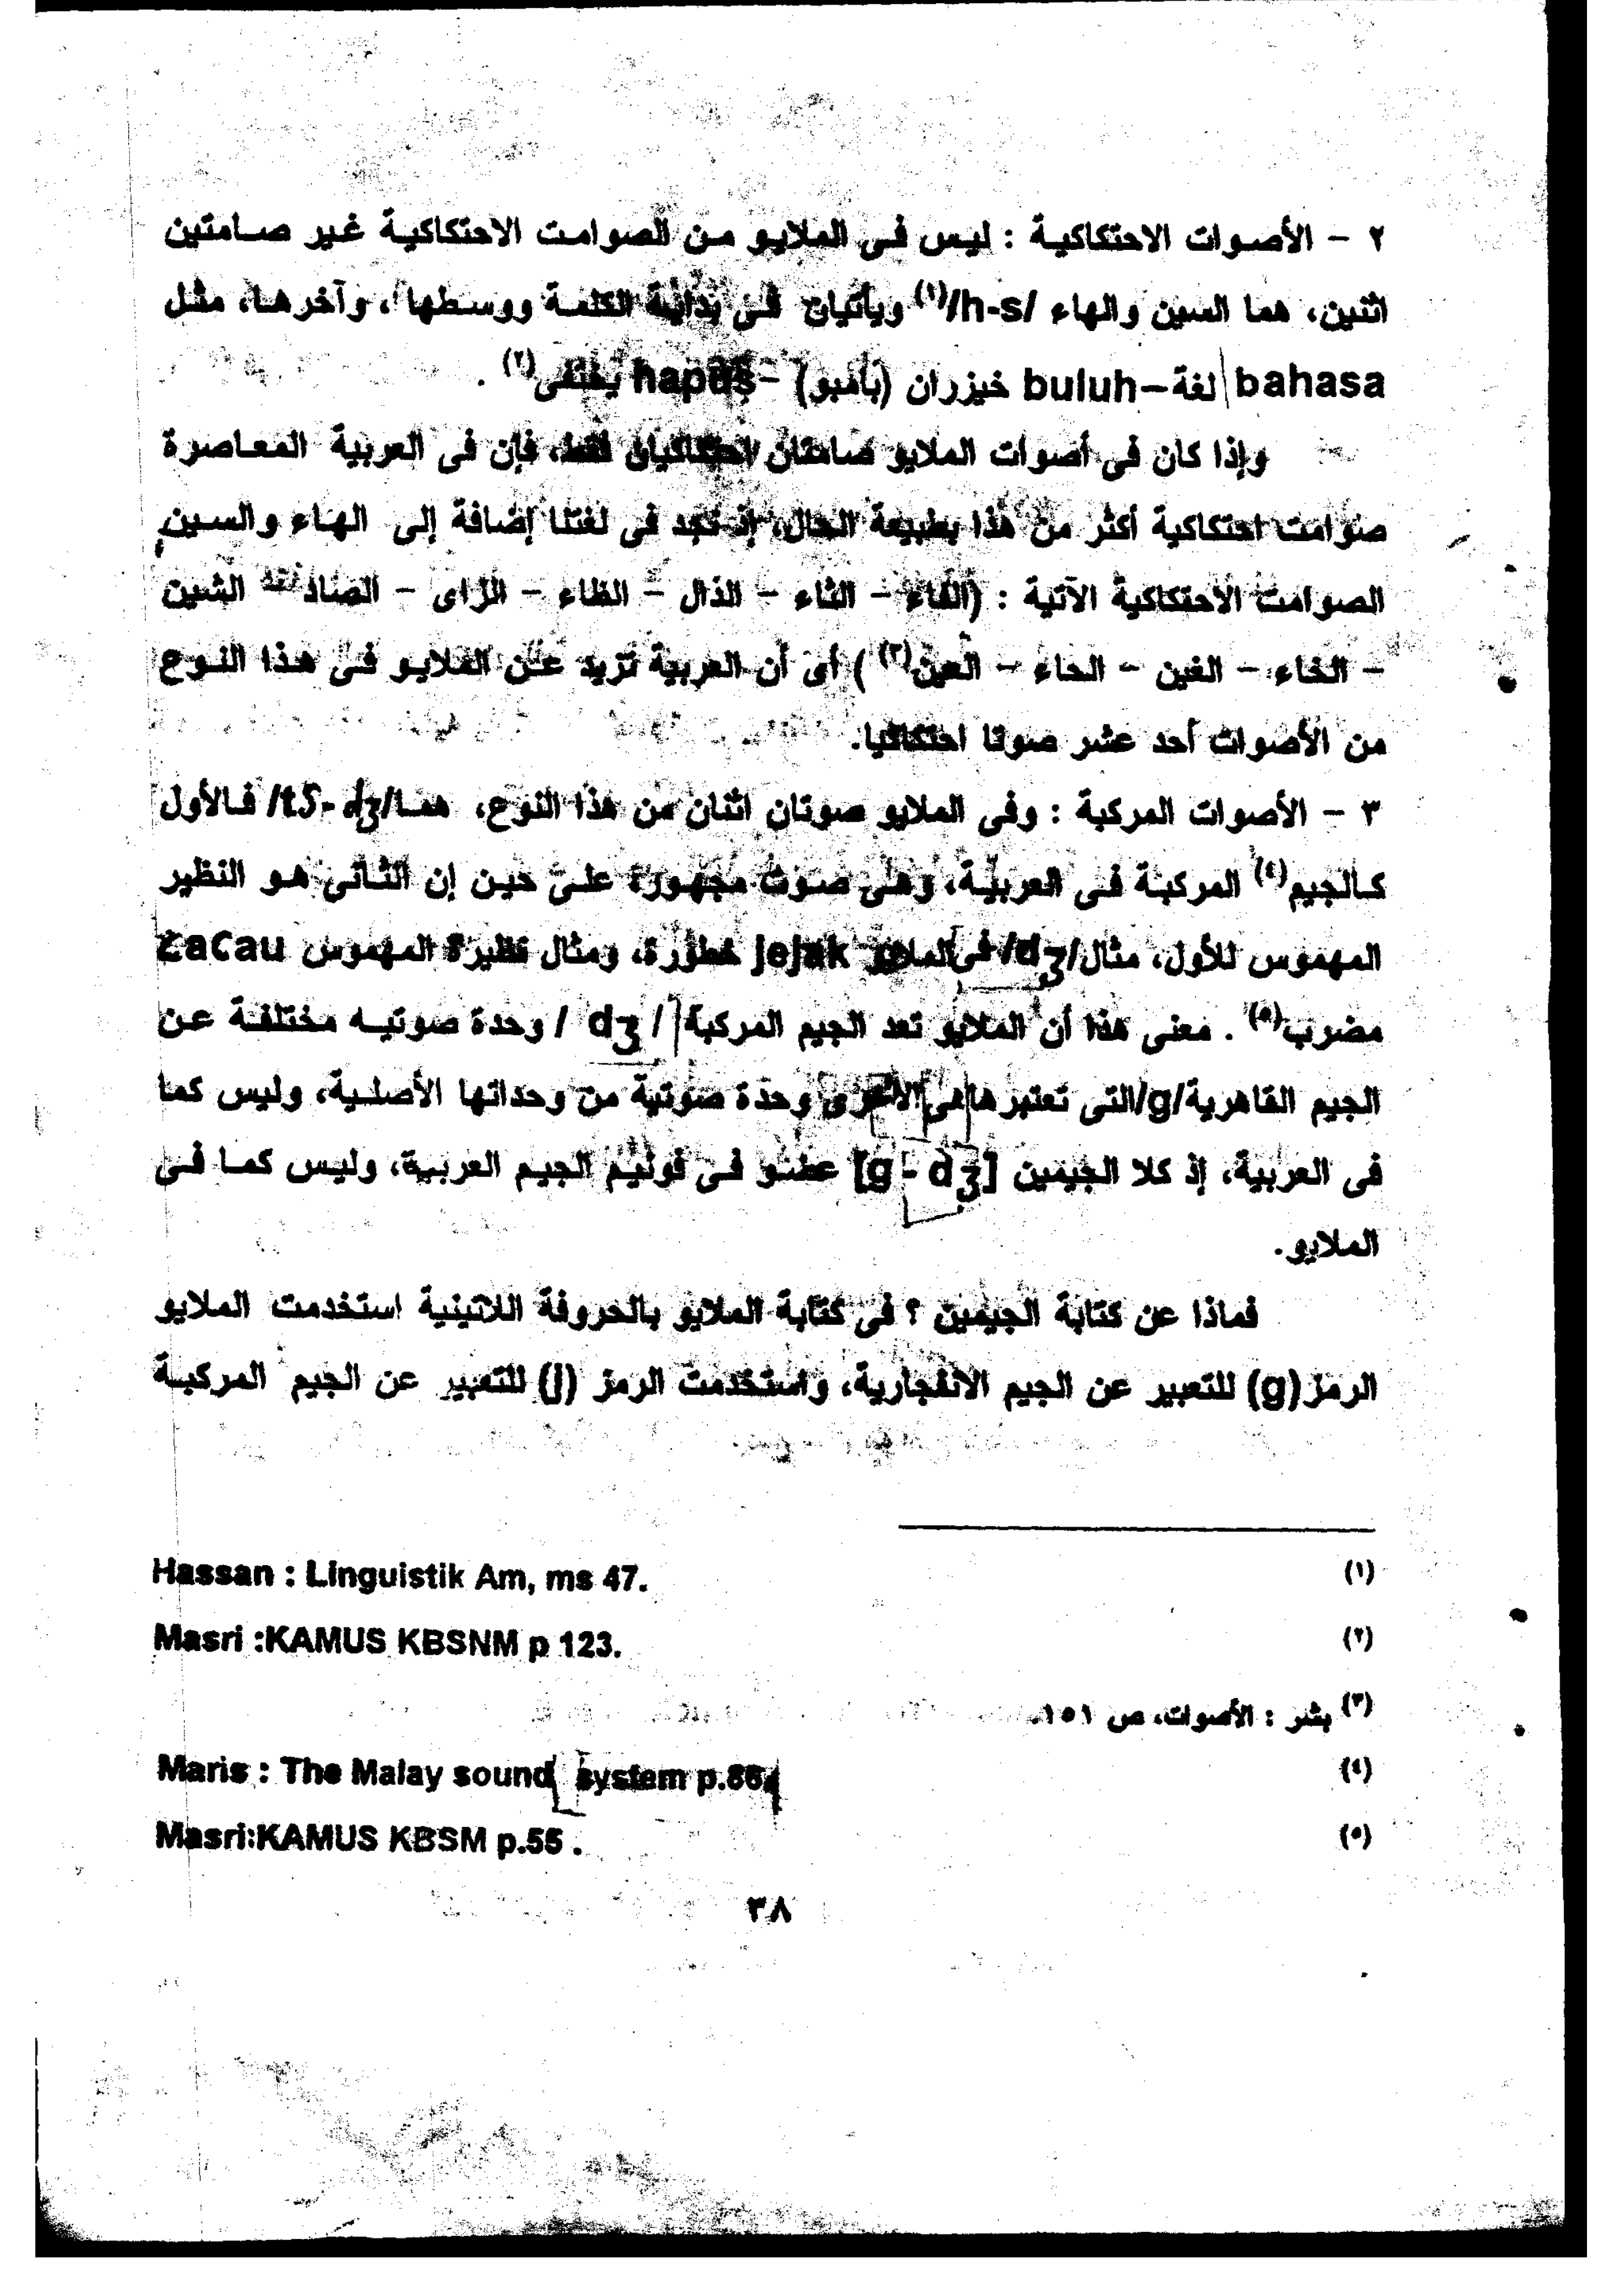 ٢ – الأصوات الاحتكاكية : ليس فى الملايو من الصوامت الاحتكاكية غير صامتين
اثنين، هما السين والهاء /h-s/(١) ويأتيان فى بداية الكلمة ووسطها، وآخرها، مثل
bahasa لغة–buluh خيزران (بامبو) –hapus يختفى(٢) .
وإذا كان فى أصوات الملايو صامتان احتكاكيان فقط، فإن فى العربية المعاصرة
صوامت احتكاكية أكثر من هذا بطبيعة الحال، إذ نجد فى لغتنا إضافة إلى الهاء والسين
الصوامت الاحتكاكية الآتية : (الفاء – الثاء – الذال – الظاء – الزاى – الصاد – الشين
– الخاء – الغين – الحاء – العين(٣) ) أى أن العربية تزيد عن الملايو فى هذا النوع
من الأصوات أحد عشر صوتا احتكاكيا.
٣ – الأصوات المركبة : وفى الملايو صوتان اثنان من هذا النوع، هما/tʃ- dʒ/ فالأول
كالجيم(٤) المركبة فى العربية، وهى صوت مجهورة على حين إن الثانى هو النظير
المهموس للأول، مثال/dʒ/ فى الملايو jejak خطورة، ومثال نظيرة المهموس cacau
مضرب(٥) . معنى هذا أن الملايو تعد الجيم المركبة / dʒ / وحدة صوتيه مختلفة عن
الجيم القاهرية/g/التى تعتبرها هى الأخرى وحدة صوتية من وحداتها الأصلية، وليس كما
فى العربية، إذ كلا الجيمين [g - dʒ] عضو فى فونيم الجيم العربية، وليس كما فى
الملايو.
فماذا عن كتابة الجيمين ؟ فى كتابة الملايو بالحروفة اللاتينية استخدمت الملايو
الرمز(g) للتعبير عن الجيم الانفجارية، واستخدمت الرمز (j) للتعبير عن الجيم المركبة
(١) Hassan : Linguistik Am, ms 47.
(٢) Masri :KAMUS KBSNM p 123.
(٣) بشر : الأصوات، ص ١٥١.
(٤) Maris : The Malay sound system p.86.
(٥) Masri:KAMUS KBSM p.55 .
٣٨